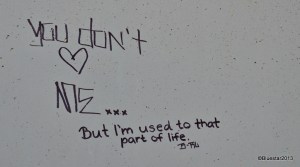 you don't
♡
ME...
But I'm used to that
part of life.
©Bluestar2013